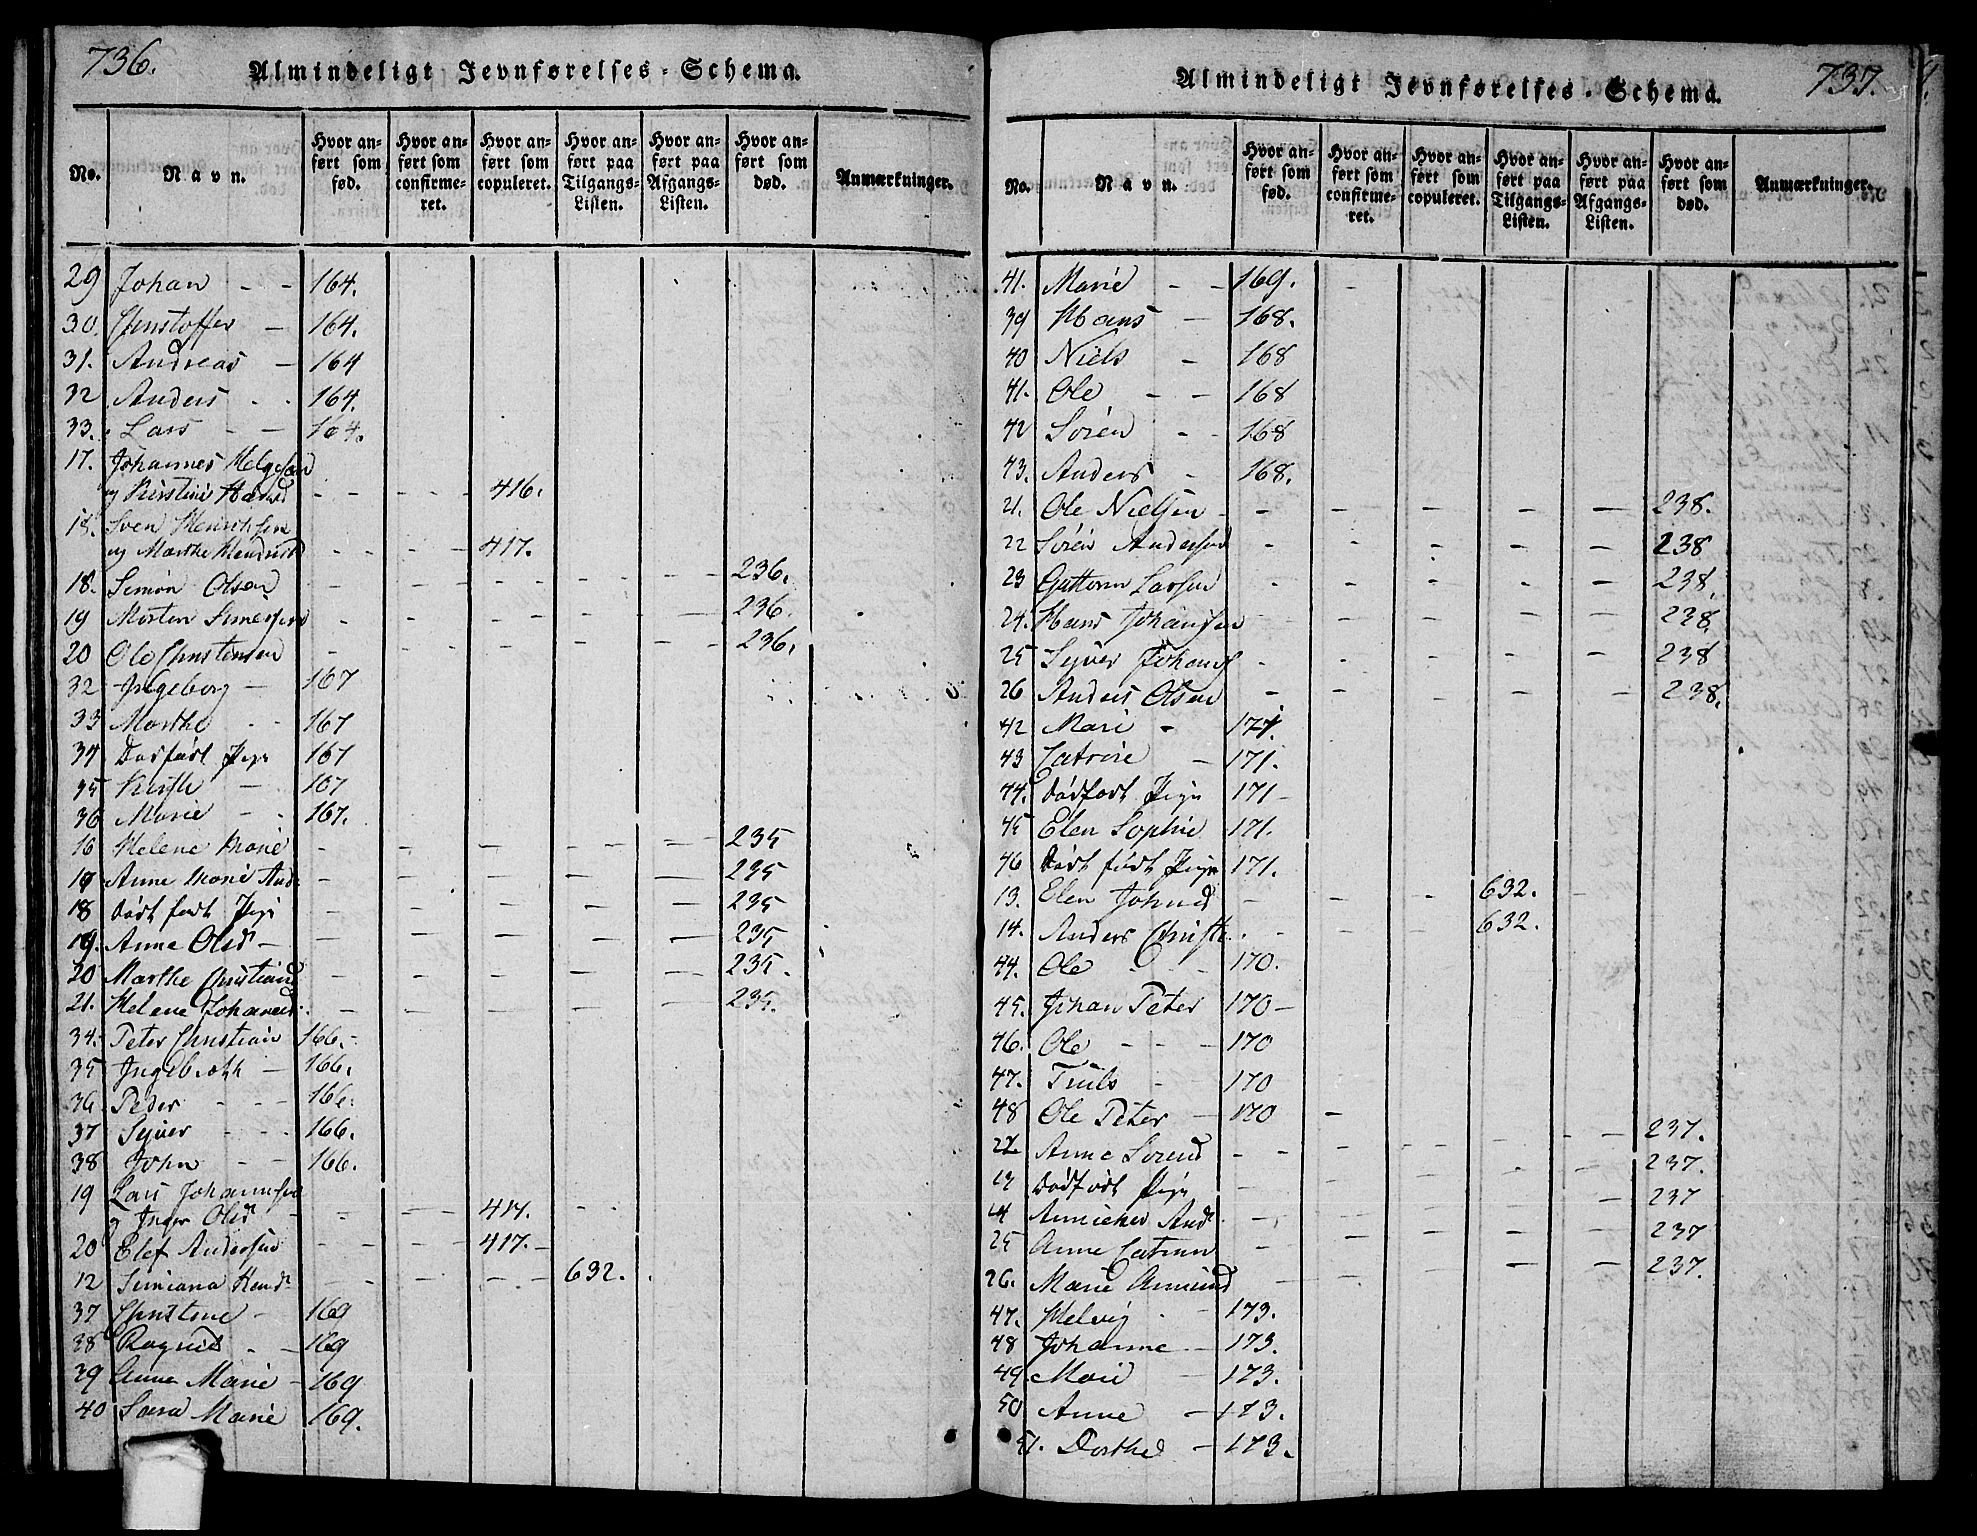 736.
Almindeligt Jevnførelses-Schema.
No. Navn. Hvor anført som fød. Hvor anført som confirmeret. Hvor anført som copuleret. Hvor anført paa Tilgangs-Listen. Hvor anført paa Afgangs-Listen. Hvor anført som død. Anmærkninger.
29 Johan - - 164.
30. Christoffer - 164.
31. Andreas - 164
32 Anders - - 164.
33. Lars - - 164.
17. Johannes Helgesen
og Kirstine - - - - 416.
18. Sven
og Marthe - - - - 417.
18. Simon Olsen - - - - - 236.
19 Morten - - - - - 236.
20 Ole Christensen - - - - - 236.
32 Ingeborg - 167
33 Marthe - - 167
34 Dødfødt Pige 167
35 - 167
36 Marie - - 167.
16 Helene Marie - - - - - 235
17 Anne Marie And. - - - - - 235
18 Dødt født Pige - - - - - 235
19. Anne Olsd - - - - - - 235
20 Marthe Christiansd - - - - - 235.
21. Helene Johannesd. - - - - - 235.
34. Peter Christian 166.-
35 Ingebreth - 166.
36 Peder - - - 166.
37 Syver - - - 166.
38 John - - 166.
19 Lars Johannesen
og Inger Olsd - - - - 417. - -
20 Elef Andersen - - - 417. -
12 Simiana Hend. - - - - - 632.
37 Christene - 169
38 Ragnild - - 169
39 Anne Marie - 169
40 Sara Marie 169.
737.
Almindeligt Jevnførelses-Schema.
No. Navn. Hvor anført som fød. Hvor anført som confirmeret. Hvor anført som copuleret. Hvor anført paa Tilgangs-Listen. Hvor anført paa Afgangs-Listen. Hvor anført som død. Anmærkninger.
41. Marie - - 169.
39 Hans - 168.
40 Niels - 168
41. Ole - - 168
42 Sören - - 168
43. Anders - 168.
21. Ole Nielsen - - - - - - 238.
22 Sören Andersen - - - - - 238
23 Guttorm Larsen - - - - - 238.
24. Hans Johansen - - - - 238.
25 Syver Johans - - - - - 238
26 Anders Olsen - - - - - 238.
42 Mari - 171.
43 Catrine - 171.
44. Dødfødt Pige 171 -
45 Elen Sophie 171.
46 Dødt født Pige 171.
13. Elen Johnsd - - - 632. -
14. Anders - - - 632.
44. Ole - - - 170.
45. Johan Peter 170 -
46. Ole - - - 170
47. Truls - 170
48 Ole Peter - 170 -
22 Anne Sörensd - - - - - - 237.
Dødfødt Pige - - - - - 237.
And. - - - - - 237
25 Anne Catrine - - - - - 237
26. Marie - - - - - 237.
47. Helvig - 173.
48 Johanne - 173.
49. Mari - 173.
50 Anne - 173.
51. Dorthe - 173.